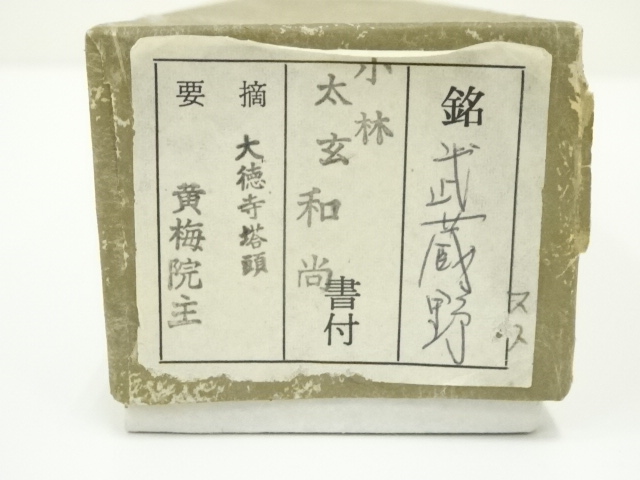 銘 武蔵野
スス
小林
太玄和尚
書付
摘要
大徳寺塔頭
黄梅院主